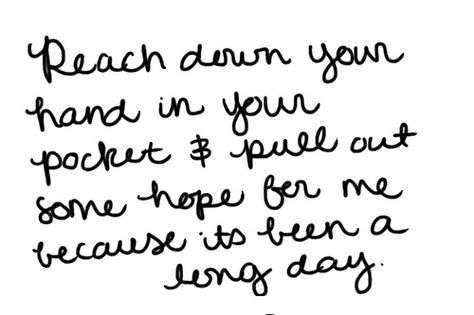 Reach down your
hand in your
pocket & pull out
some hope for me
because its been a
long day.